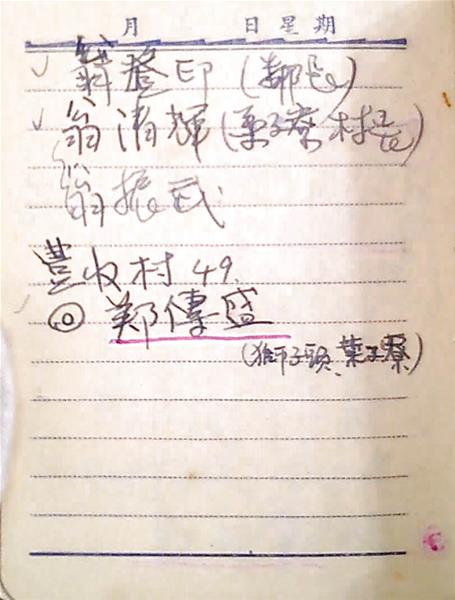 月 日 星 期
登印(鄰長)
翁清輝(子寮村長)
翁振武
豊收村 49.
◎ 鄭傳盛
(獅子頭、葉子寮)